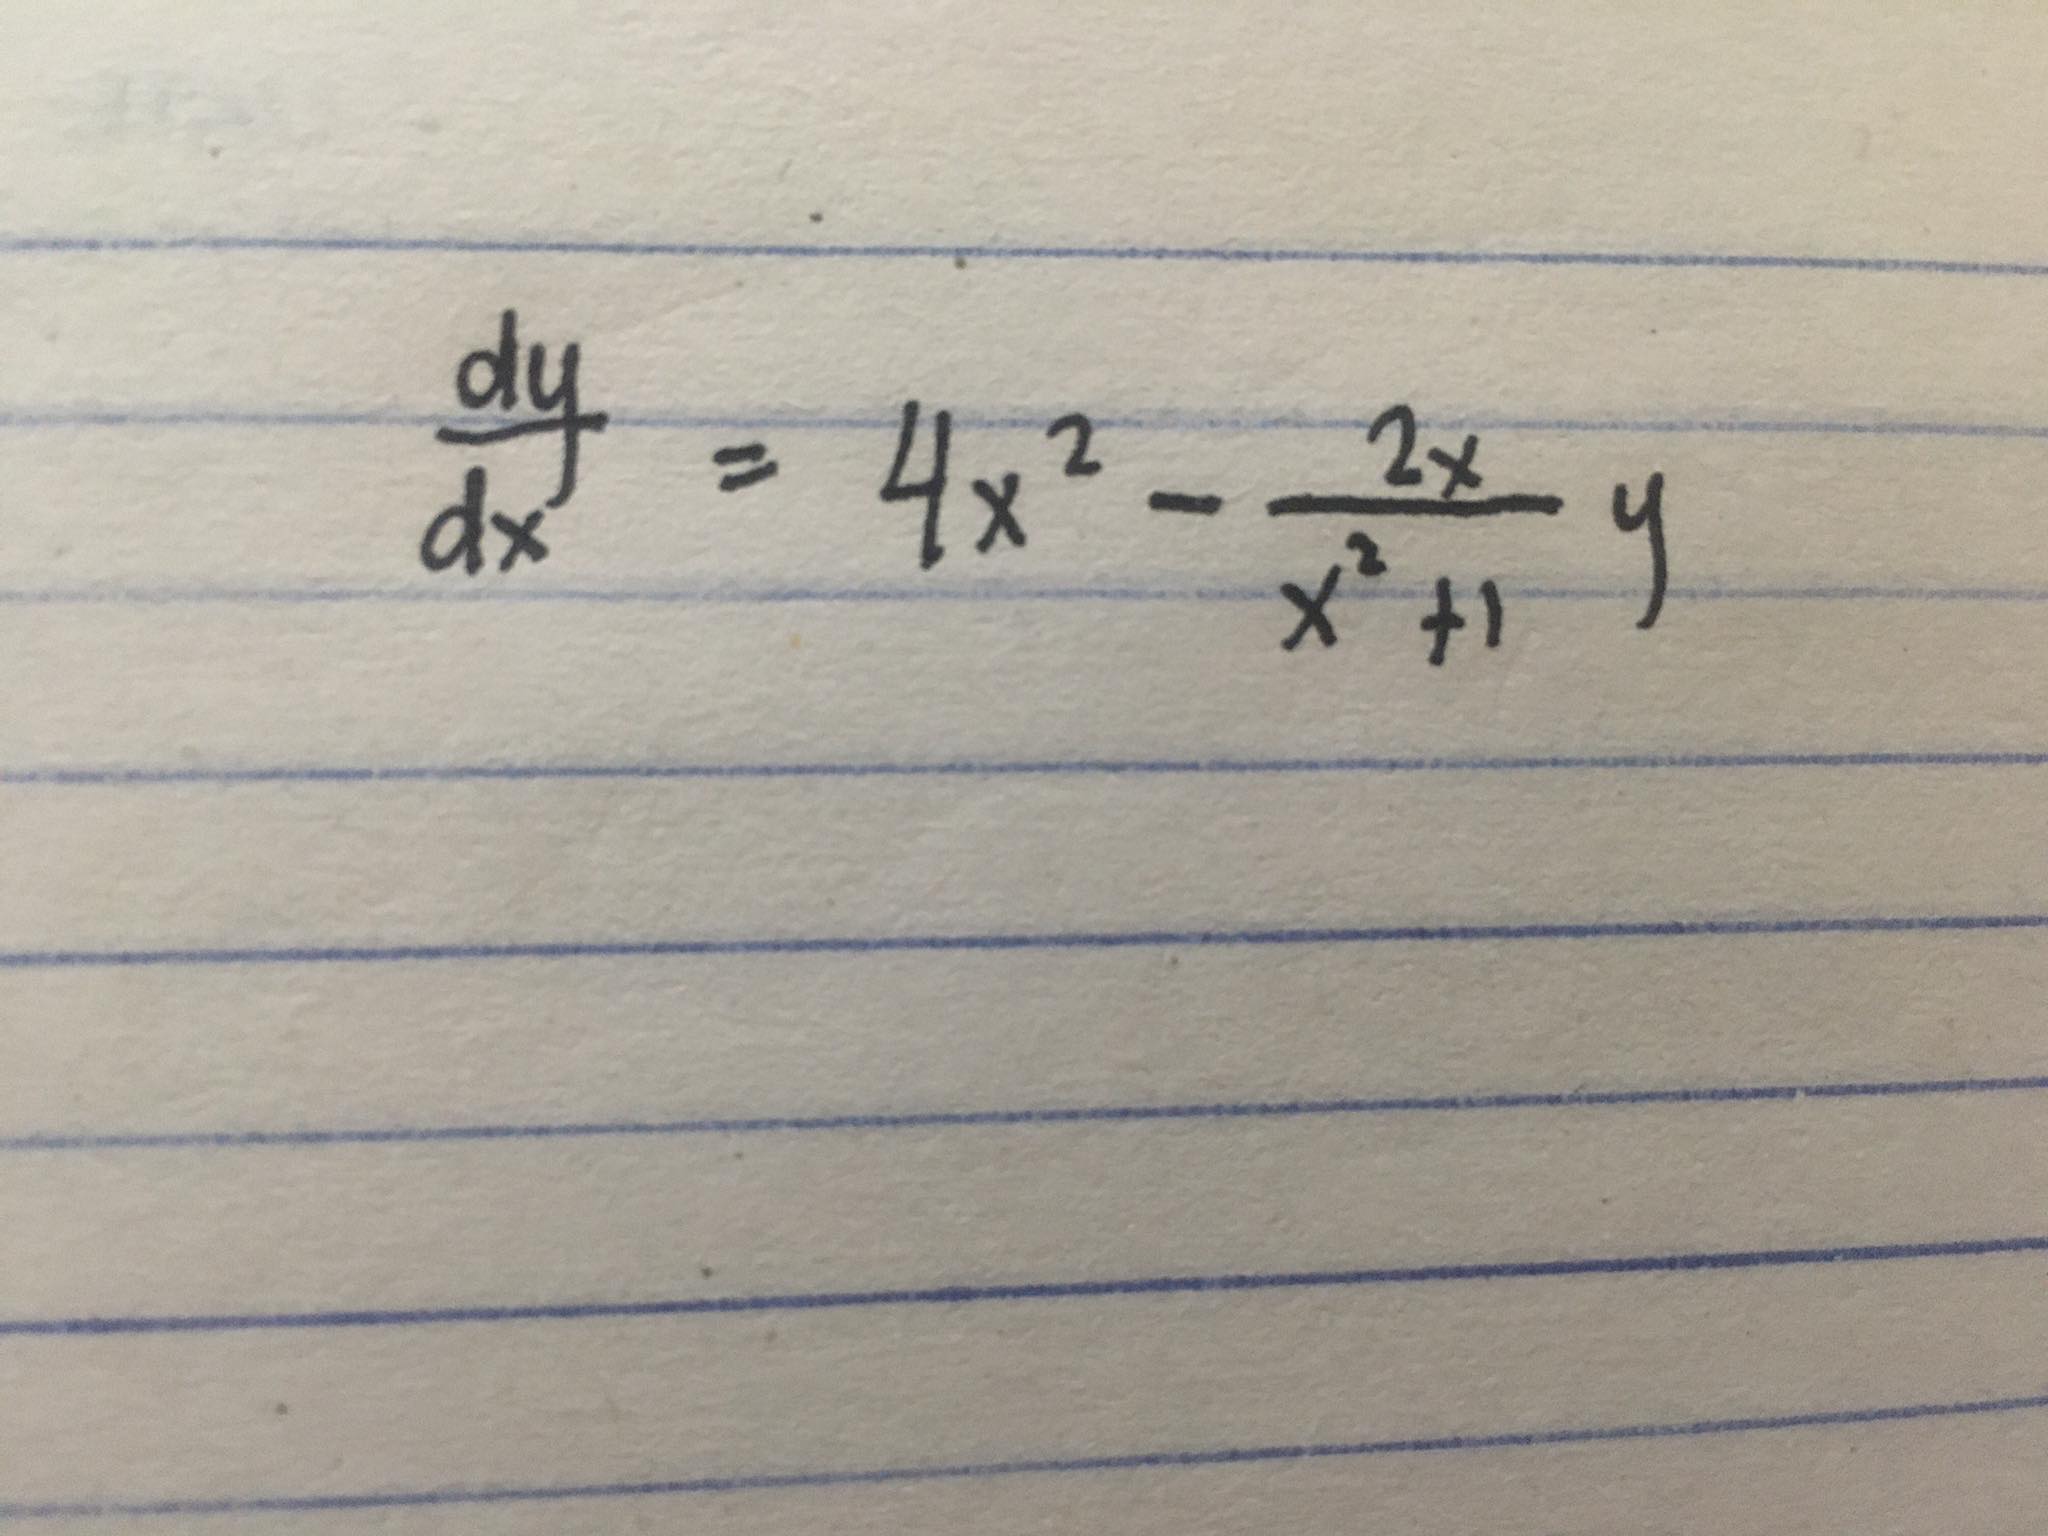 dy/dx = 4x² - 2x/(x²+1) y